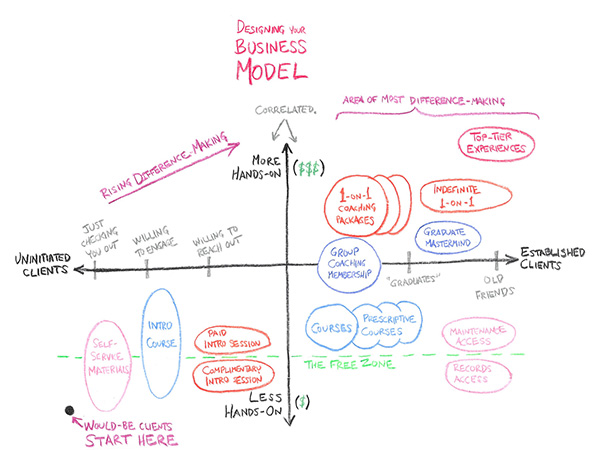 DESIGNING YOUR
BUSINESS
MODEL
CORRELATED.
AREA OF MOST DIFFERENCE-MAKING
RISING DIFFERENCE-MAKING
MORE
HANDS-ON
($$$)
TOP-TIER
EXPERIENCES
1-ON-1
COACHING
PACKAGES
INDEFINITE
1-ON-1
JUST
CHECKING
YOU OUT
WILLING
TO ENGAGE
WILLING TO
REACH OUT
GROUP
COACHING
MEMBERSHIP
GRADUATE
MASTERMIND
UNINITIATED
CLIENTS
ESTABLISHED
CLIENTS
"GRADUATES"
OLD
FRIENDS
SELF-
SERVICE
MATERIALS
INTRO
COURSE
PAID
INTRO SESSION
COMPLIMENTARY
INTRO SESSION
COURSES
PRESCRIPTIVE
COURSES
MAINTENANCE
ACCESS
THE FREE ZONE
RECORDS
ACCESS
LESS
HANDS-ON
($)
WOULD-BE CLIENTS
START HERE